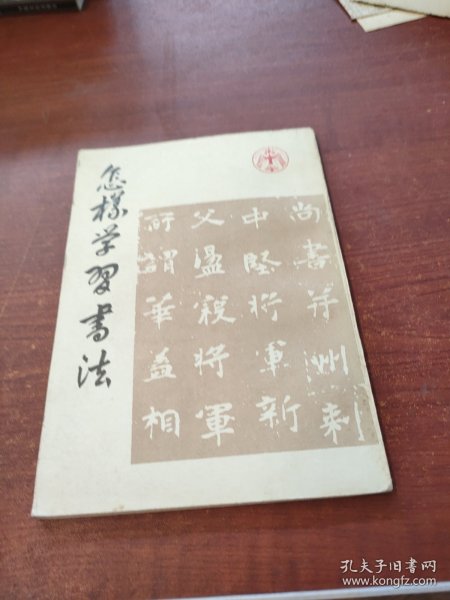 怎樣学習書法
尚書并州刺
中堅將軍新
父溫稅將軍
所謂華蓋相
孔夫子旧书网
www.kongfz.com